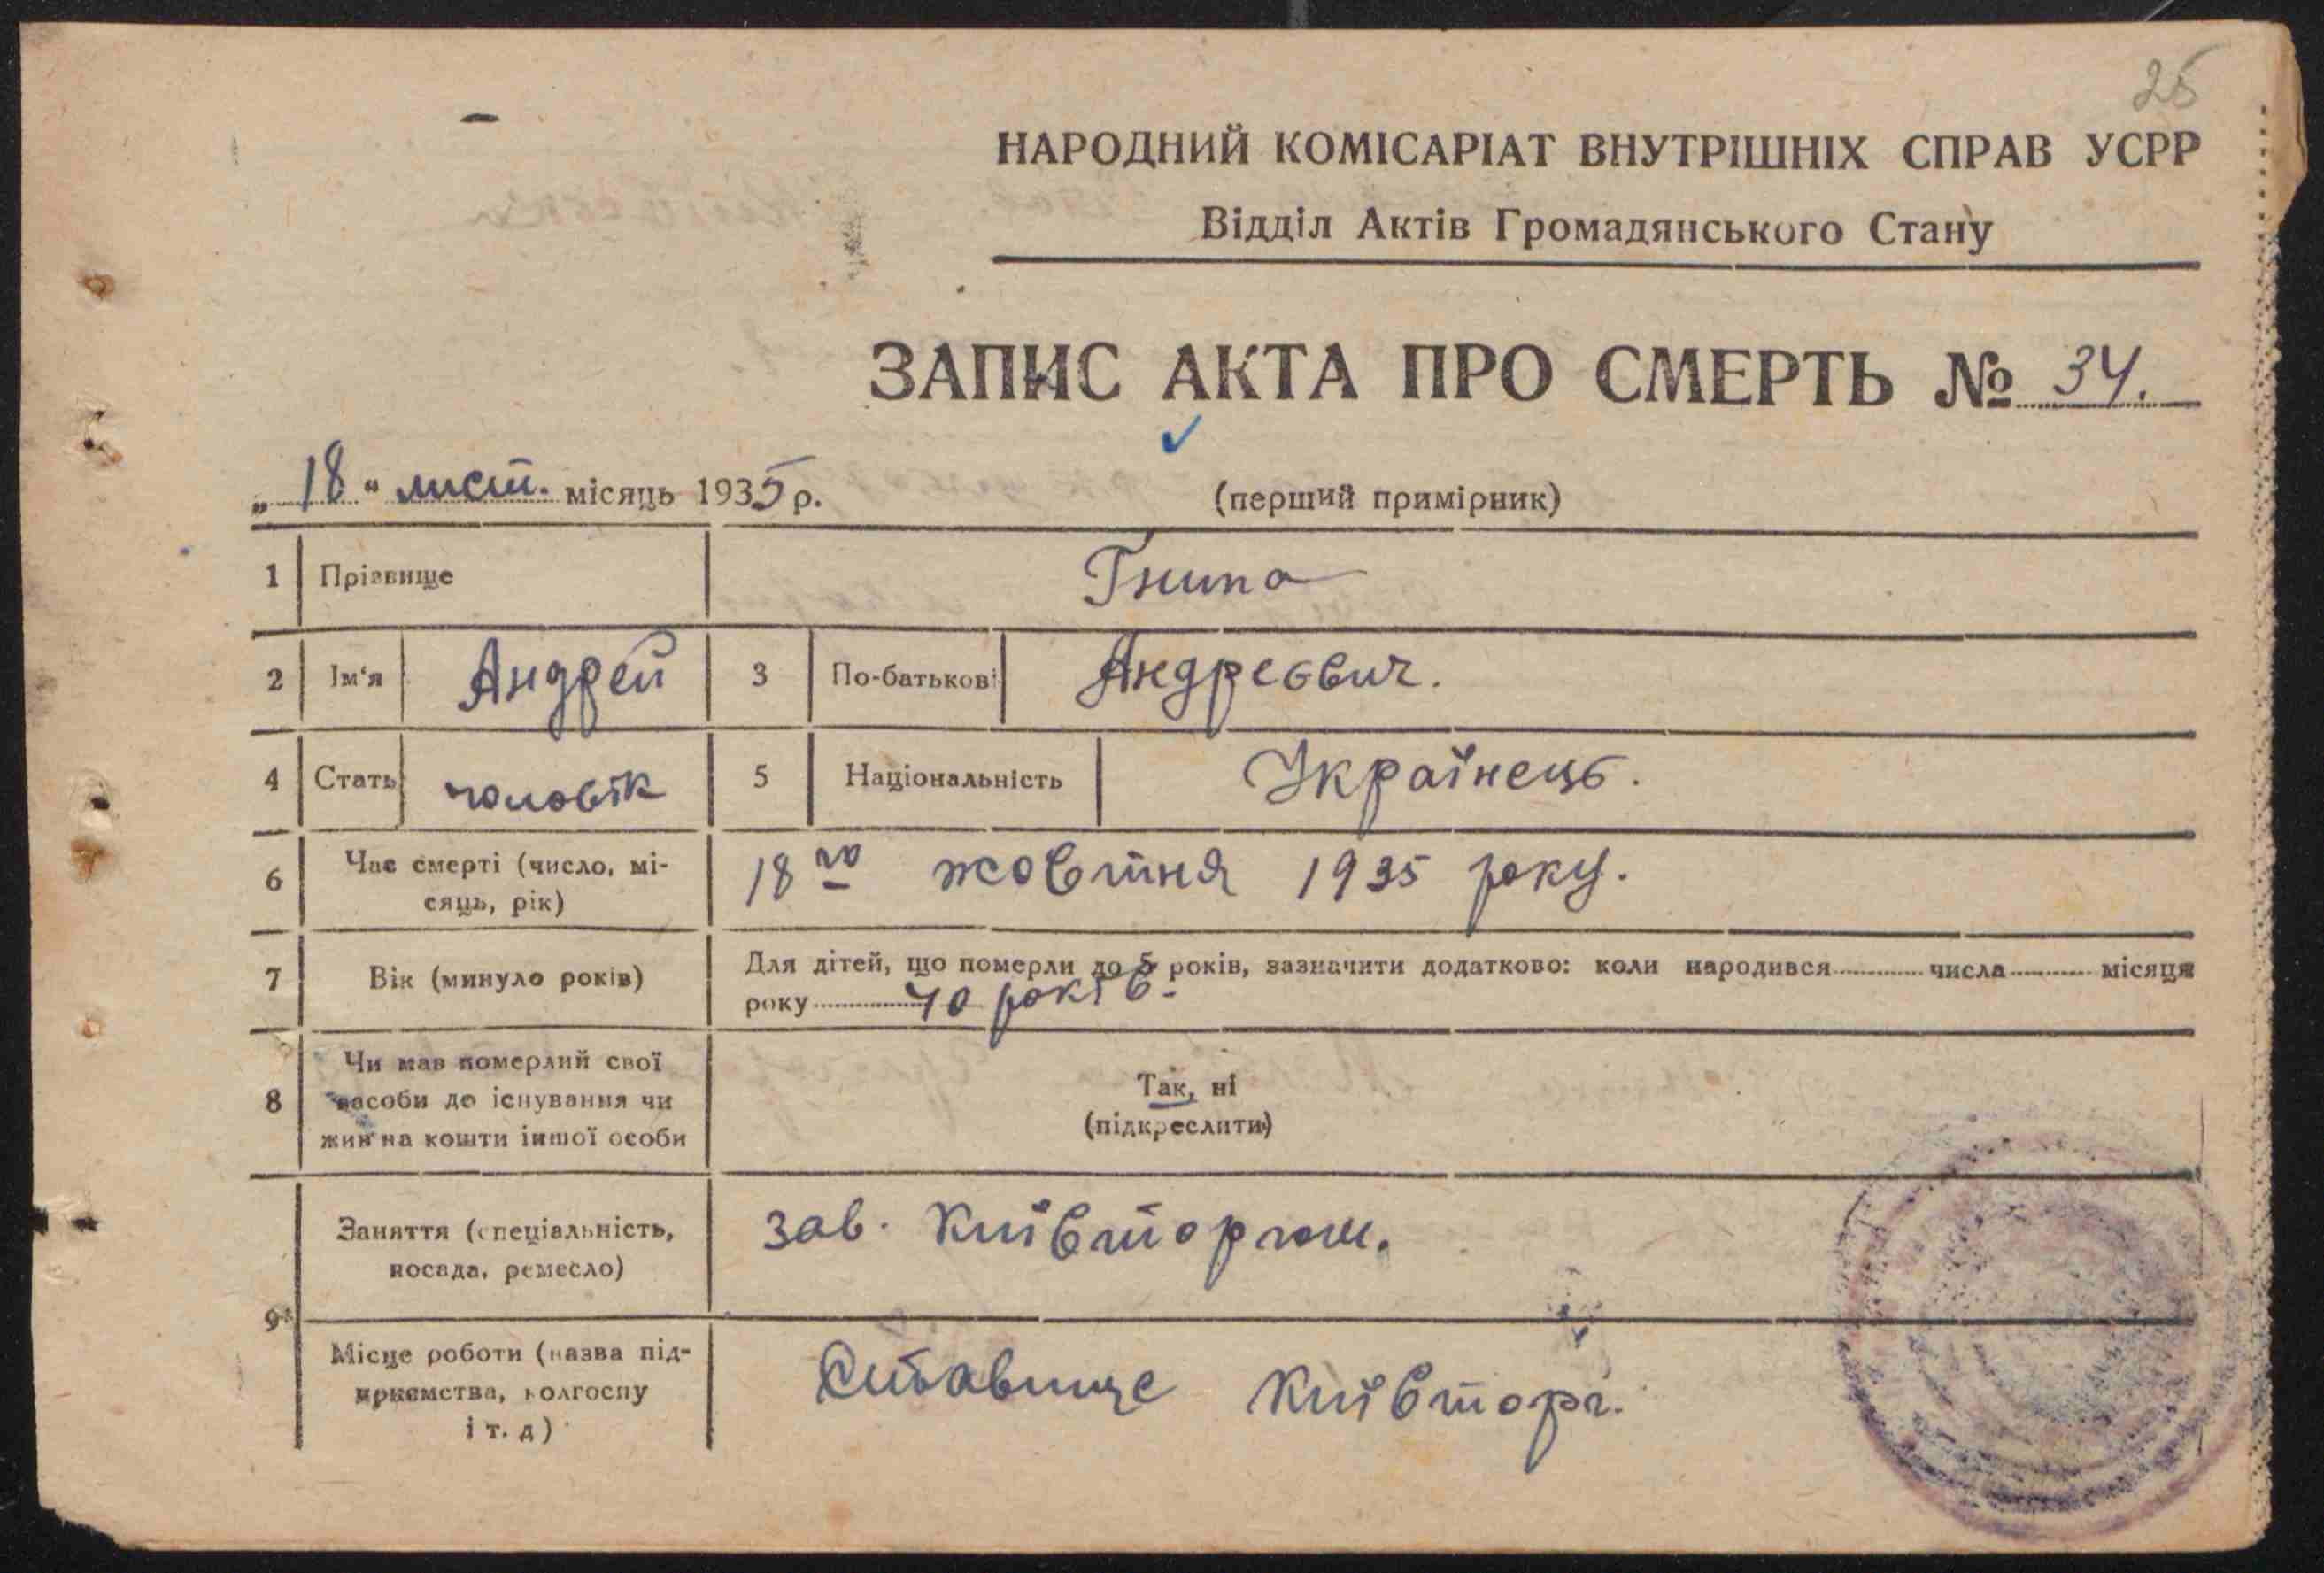 25
НАРОДНИЙ КОМІСАРІАТ ВНУТРІШНІХ СПРАВ УСРР
Відділ Актів Громадянського Стану
ЗАПИС АКТА ПРО СМЕРТЬ № 34.
„18“ лист. місяць 1935 р.
(перший примірник)
1 Прізвище Гнипа
2 Ім'я Андрей 3 По-батькові Андреєвич.
4 Стать чоловік 5 Національність Українець.
6 Час смерті (число, мі-
сяць, рік) 18го жовтня 1935 року.
7 Вік (минуло років) Для дітей, що померли до 5 років, зазначити додатково: коли народився числа місяця
року 40 років.
8 Чи мав померлий свої
засоби до існування чи
жив на кошти іншої особи
Так, ні
(підкреслити)
9 Заняття (спеціальність,
посада, ремесло) зав. Київторгом.
Місце роботи (назва під-
приємства, колгоспу
і т. д) Ставище Київторг.